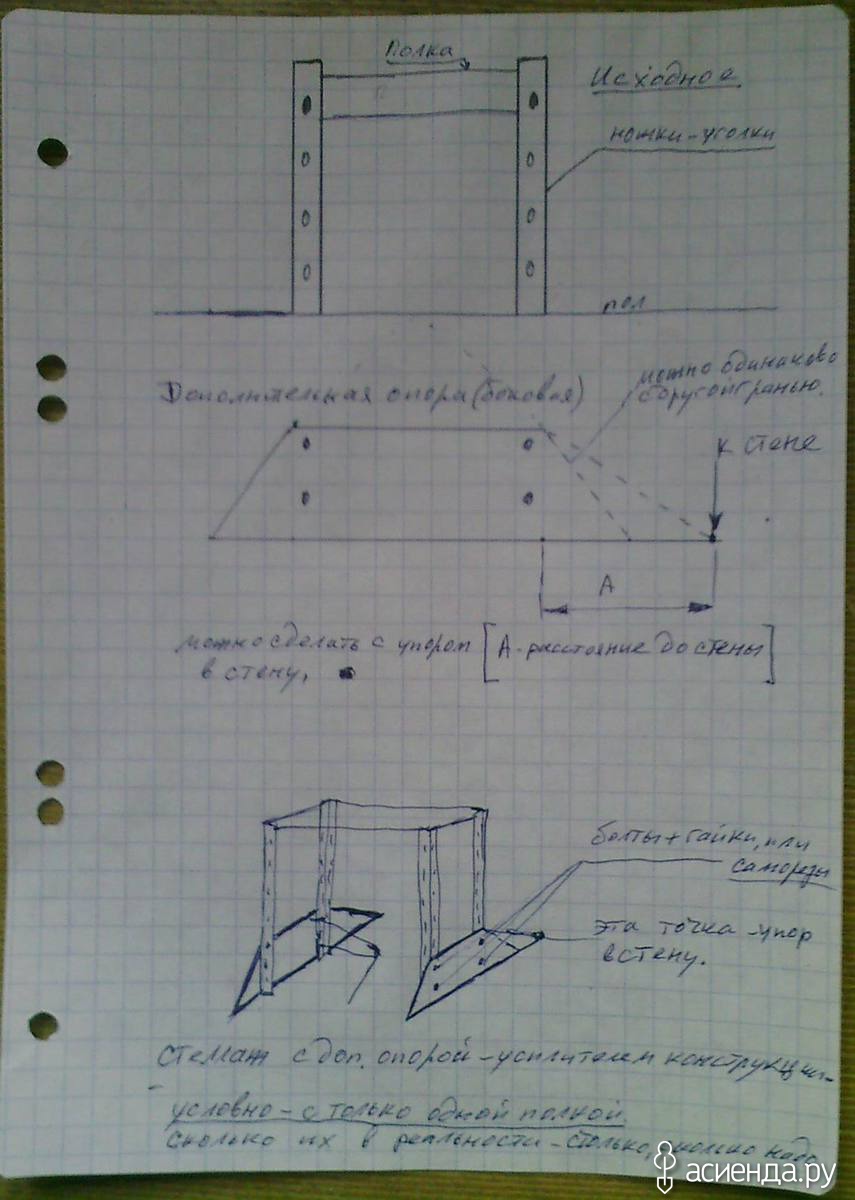 Полка
Исходное
ножки-уголки
пол
Дополнительная опора (боковая)
можно одинаково
с другой гранью.
к стене
А
можно сделать с упором [А-расстояние до стены]
в стену,
болты + гайки, или
саморезы
эта точка - упор
в стену.
стеллаж с доп. опорой - усилителем конструкции-
условно - с только одной полкой.
сколько их в реальности - столько, сколько надо.
асиенда.ру